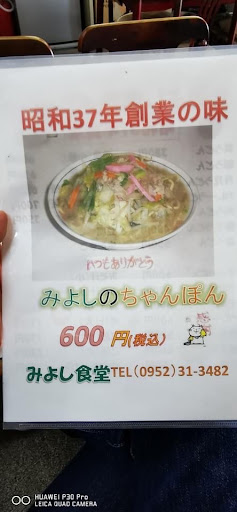 昭和37年創業の味
いつもありがとう
みよしのちゃんぽん
600 円(税込)
みよし食堂 TEL(0952)31-3482
HUAWEI P30 Pro
LEICA QUAD CAMERA